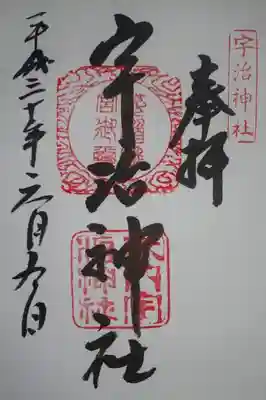 宇治神社
奉拝
宇治神社
平成三十年六月九日